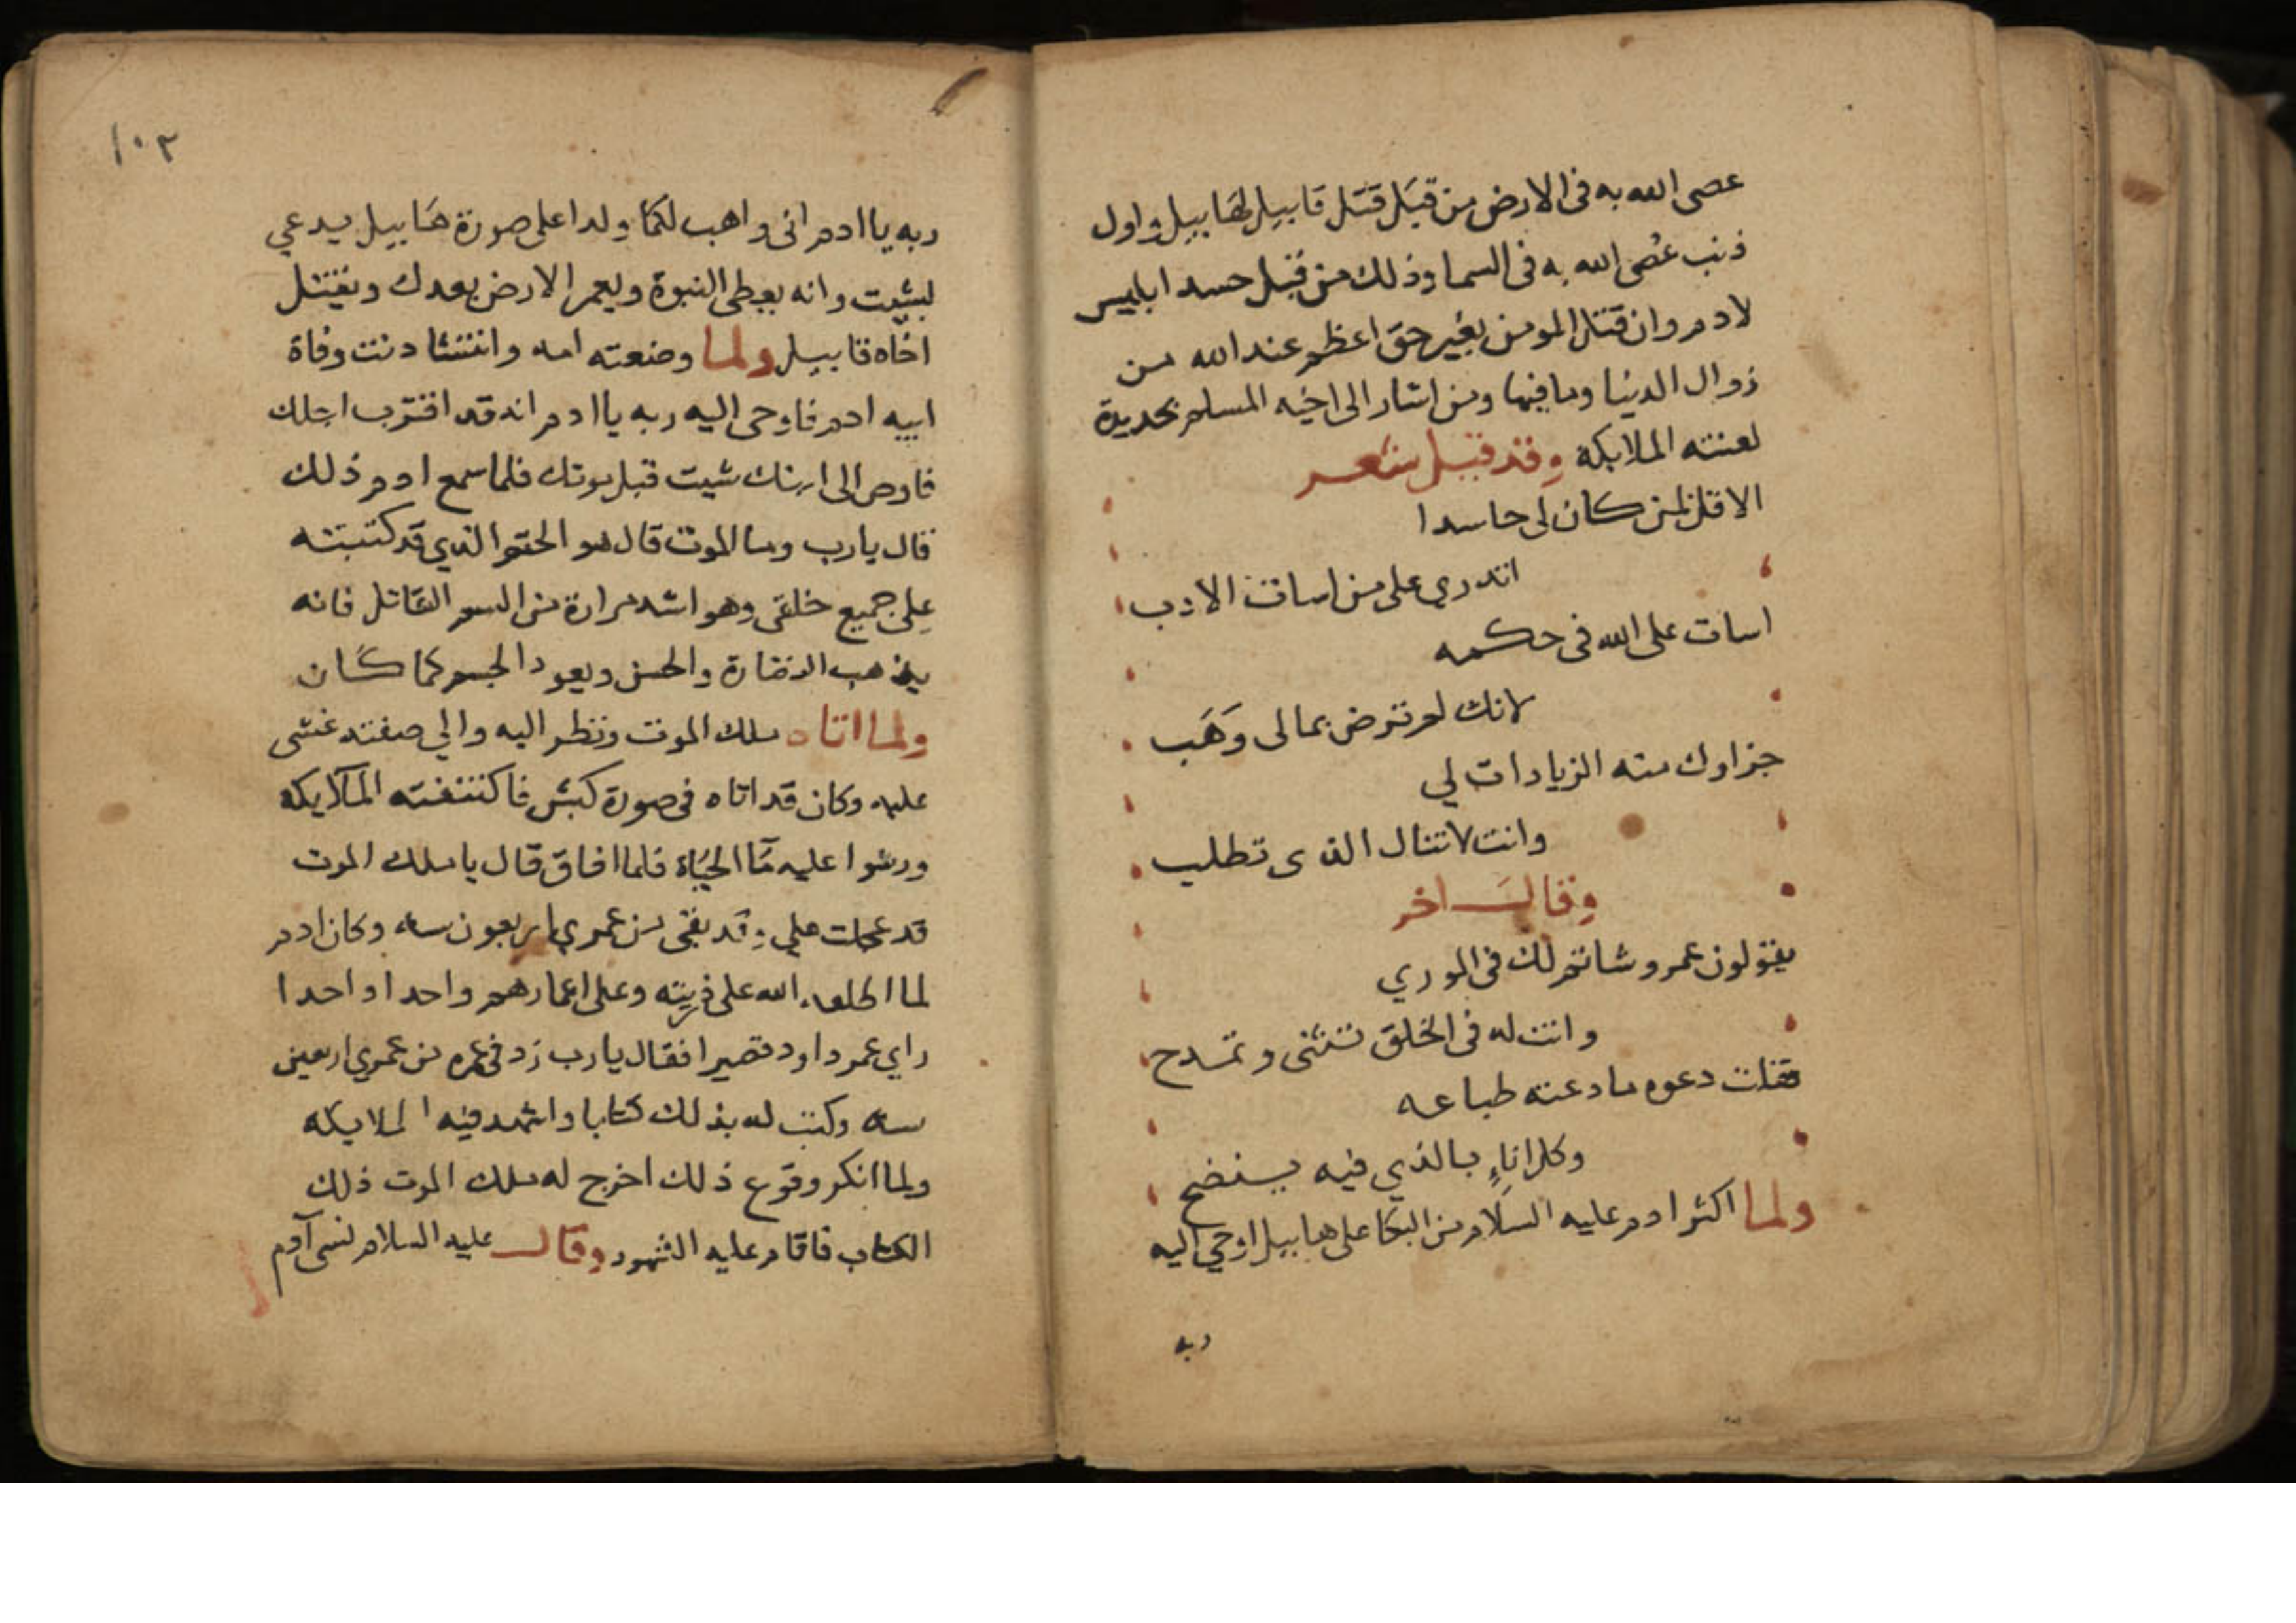 عصى الله به فى الارض من قبل قتل قابيل لهابيل واول
ذنب عصى الله به فى السما وذلك من قبل حسد ابليس
لادم وان قتل المومن بغير حق اعظم عند الله من
زوال الدنيا وما فيها ومن اشار الى اخيه المسلم بحديدة
لعنته الملايكه وقد قيل شعر
الا قل لمن كان لى حاسدا
اتدري على من اسات الادب
اسات على الله فى حكمه
لانك لم ترض بما لى وَهَب
جزاوك منه الزيادات لي
وانت لا تنال الذى تطلب
وقال اخر
يقولون عمرو شاتم لك فى الوري
وانت له فى الخلق تثنى وتمدح
فقلت دعوه ما دعته طباعه
وكل اناءٍ بالذي فيه ينضح
ولما اكثر ادم عليه السلام من البكا على هابيل اوحي اليه
ربه
١٠٣
ربه يا ادم انى واهب لكما ولدا على صورة هَابيل يدعي
بشيت وانه يعطى النبوة ويعمر الارض بعدك ويقتل
اخاه قابيل ولما وضعته امه وانتشا دنت وفاة
ابيه ادم فاوحى اليه ربه يا ادم انه قد اقترب اجلك
فاوص الى ابنك شيت قبل موتك فلما سمع ادم ذلك
قال يارب وما الموت قال هو الحتم الذي قد كتبته
على جميع خلقى وهو اشد مرارة من السم القاتل فانه
يذهب النضارة والحسن ويعود الجسم كما كان
ولما اتاه ملك الموت ونظر اليه والي صفته غشى
عليه وكان قد اتاه فى صورة كبش فاكتنفته الملايكه
ورشوا عليه مآ الحيَاة فلما افاق قال يا ملك الموت
قد عجلت علي وقد بقى من عمري اربعون سنه وكان ادم
لما اطلعه الله على ذريته وعلى اعمارهم واحدا واحدا
راي عمر داود قصيرا فقال يارب زد فى عمره من عمري اربعين
سنه وكتب له بذلك كتابا واشهد فيه الملايكه
ولما انكر وقوع ذلك اخرج له ملك الموت ذلك
الكتاب فاقام عليه الشهود وقال عليه السلام نسى آدم